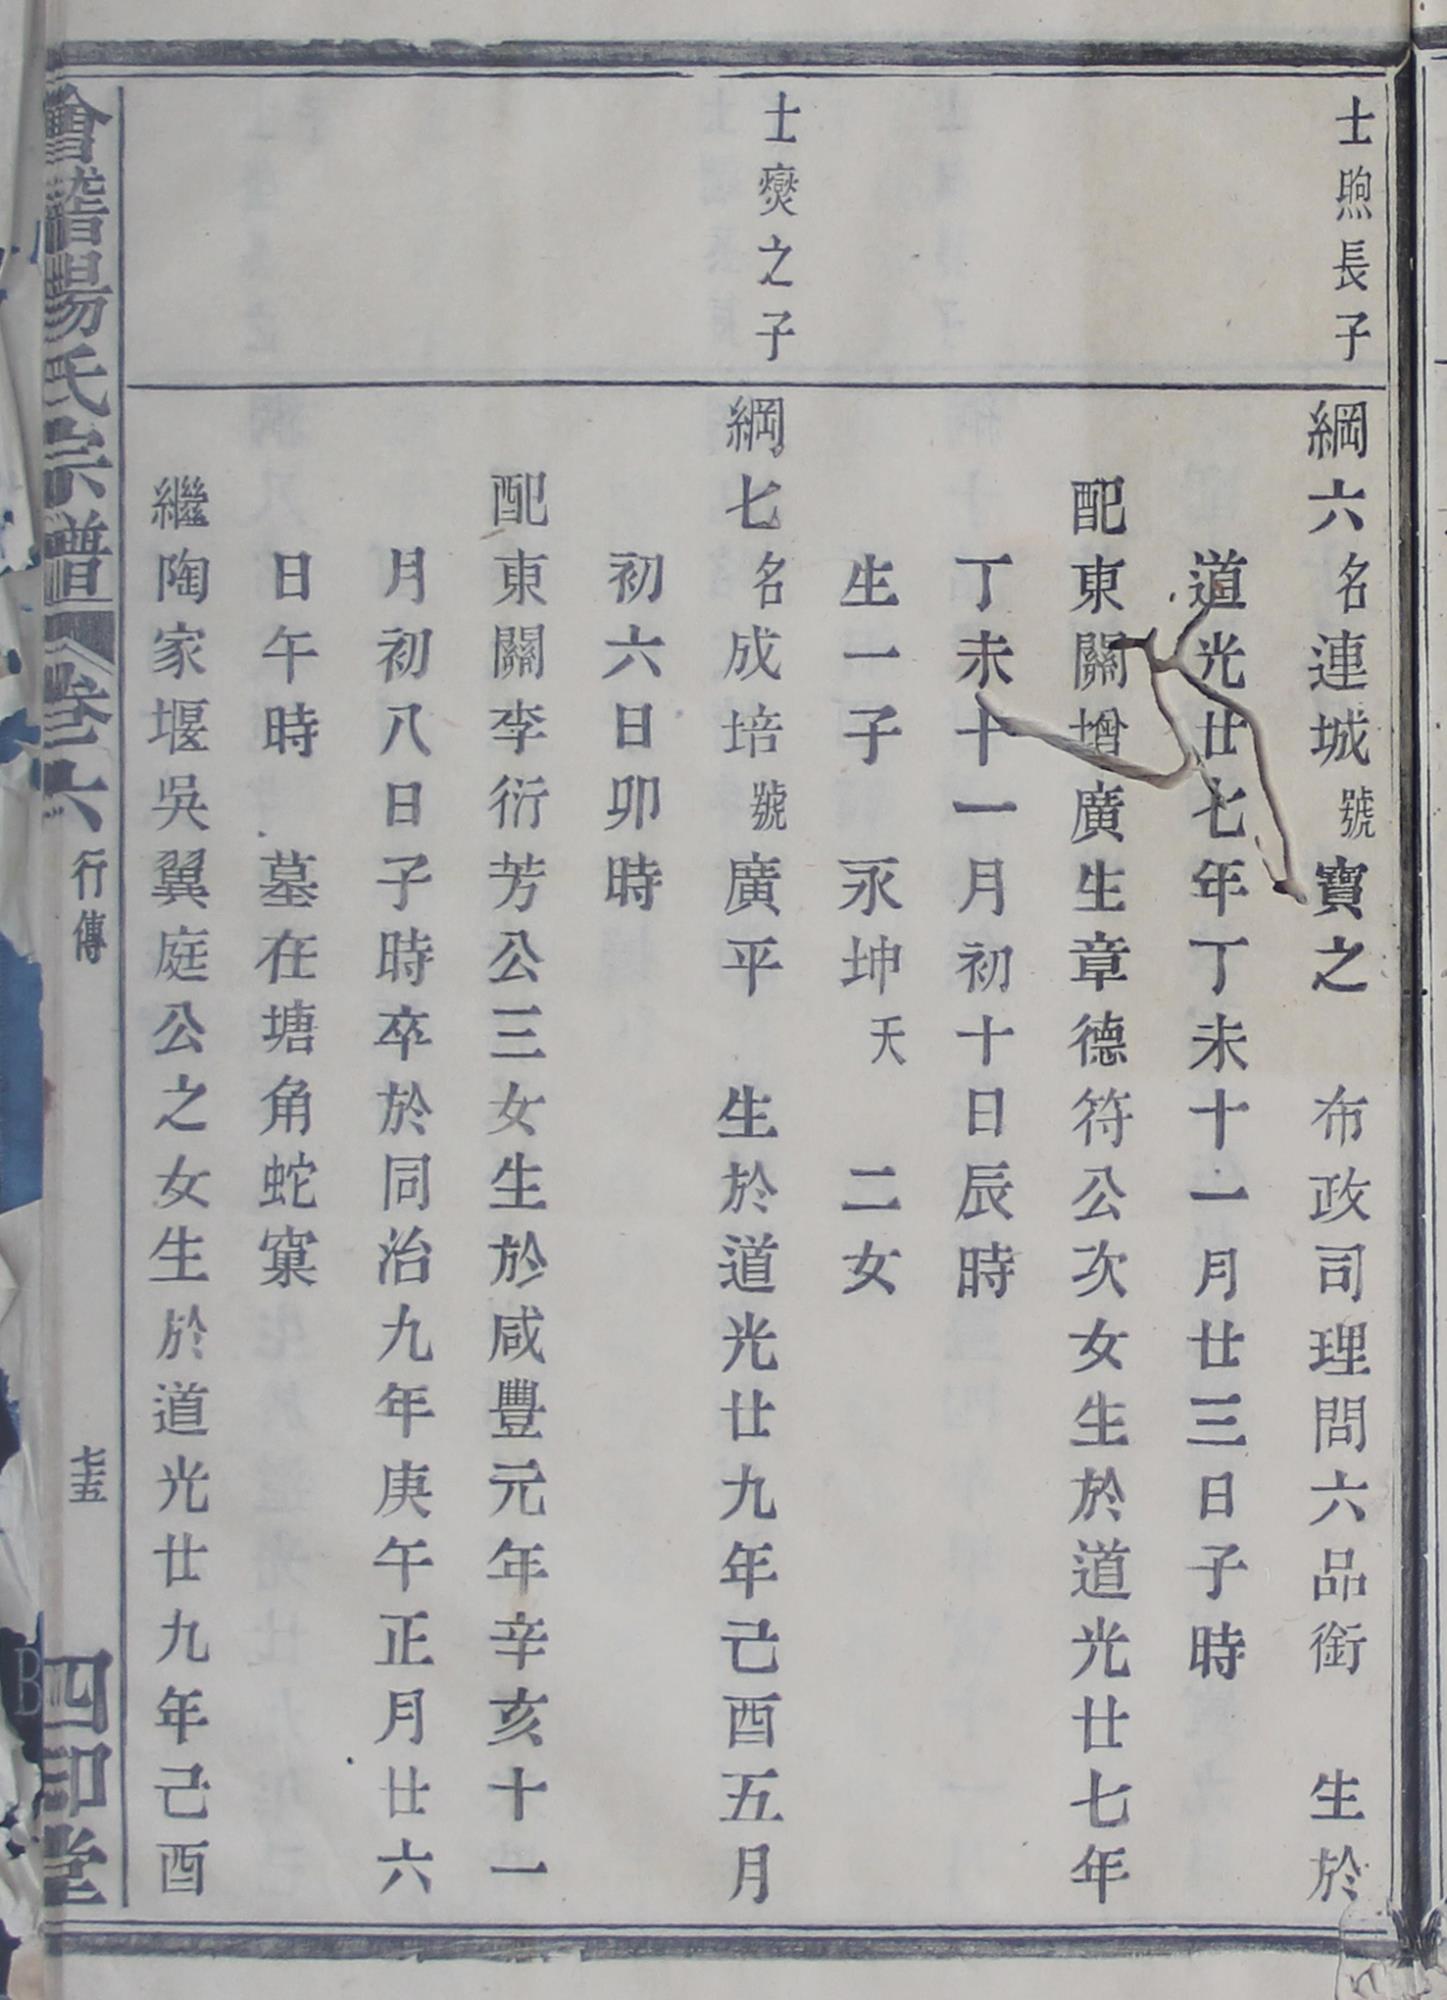 士煦長子
綱六名連城號寶之　布政司理問六品銜　生於
道光廿七年丁未十一月廿三日子時
配東關增廣生章德符公次女生於道光廿七年
丁未十一月初十日辰時
生一子　永坤夭　二女
士燮之子
綱七名成培號廣平　生於道光廿九年己酉五月
初六日卯時
配東關李衍芳公三女生於咸豐元年辛亥十一
月初八日子時卒於同治九年庚午正月廿六
日午時　墓在塘角蛇窠
繼陶家堰吳翼庭公之女生於道光廿九年己酉
會稽陽氏宗譜　卷六　行傳　七十五　四印堂
B